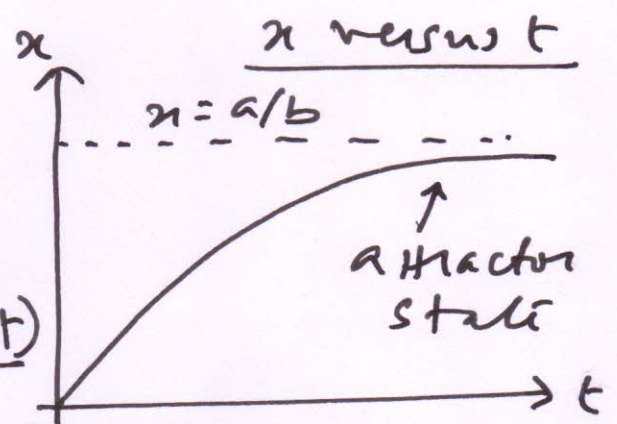 x versus t
x
x = a/b
attractor
state
t)
t